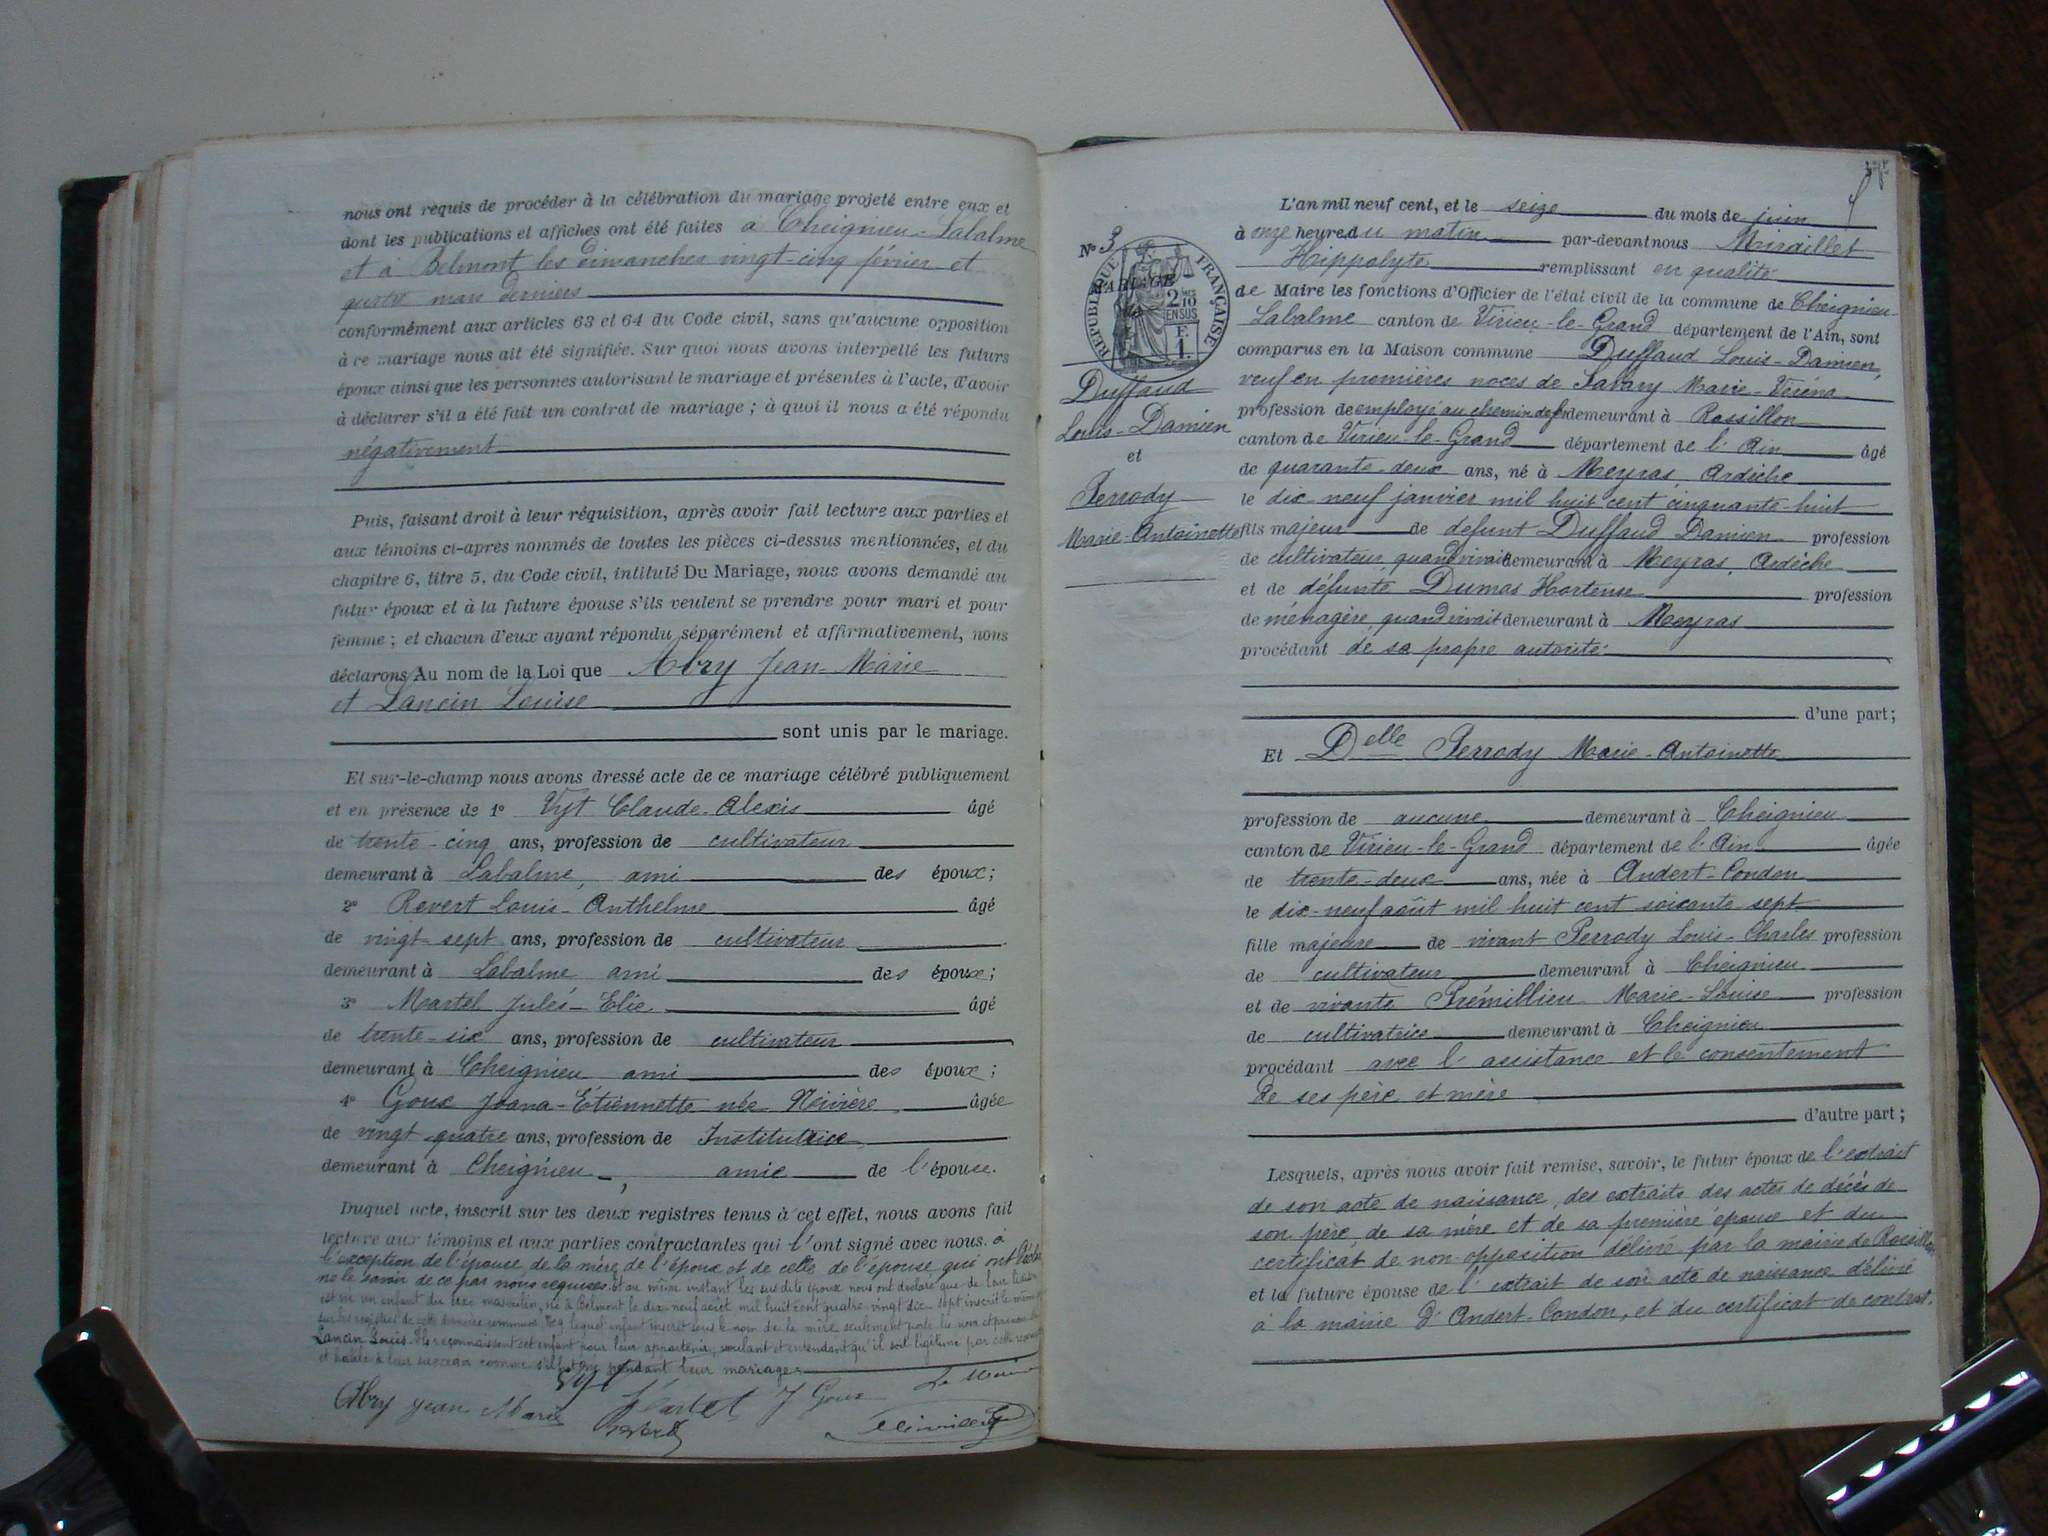 nous ont requis de procéder à la célébration du mariage projeté entre eux et
dont les publications et affiches ont été faites à Cheignieu-Labalme
et à Belmont les dimanches vingt-cinq février et
quatre mars derniers
conformément aux articles 63 et 64 du Code civil, sans qu'aucune opposition
à ce mariage nous ait été signifiée. Sur quoi nous avons interpellé les futurs
époux ainsi que les personnes autorisant le mariage et présentes à l'acte, d'avoir
à déclarer s'il a été fait un contrat de mariage ; à quoi il nous a été répondu
négativement
Puis, faisant droit à leur réquisition, après avoir fait lecture aux parties et
aux témoins ci-après nommés de toutes les pièces ci-dessus mentionnées, et du
chapitre 6, titre 5, du Code civil, intitulé Du Mariage, nous avons demandé au
futur époux et à la future épouse s'ils veulent se prendre pour mari et pour
femme ; et chacun d'eux ayant répondu séparément et affirmativement, nous
déclarons Au nom de la Loi que Abry Jean-Marie
et Lancin Louise
sont unis par le mariage.
Et sur-le-champ nous avons dressé acte de ce mariage célébré publiquement
et en présence de 1° Vyt Claude-Alexis âgé
de trente-cinq ans, profession de cultivateur
demeurant à Labalme, ami des époux ;
2° Revert Louis-Anthelme âgé
de vingt-sept ans, profession de cultivateur
demeurant à Labalme ami des époux ;
3° Martel Jules-Elie âgé
de trente-six ans, profession de cultivateur
demeurant à Cheignieu ami des époux ;
4° Goux Joana-Etiennette née âgée
de vingt quatre ans, profession de Institutrice
demeurant à Cheignieu, amie de l'épouse.
Duquel acte, inscrit sur les deux registres tenus à cet effet, nous avons fait
lecture aux témoins et aux parties contractantes qui l'ont signé avec nous. à
l'exception de l'épouse, de la mère de l'époux et de celle de l'épouse qui ont déclaré
ne le savoir de ce par nous requises. Et au même instant les susdits époux nous ont déclaré que de leur liaison
est né un enfant du sexe masculin, né à Belmont le dix neuf août mil huit cent quatre-vingt dix-sept inscrit le même
sur les registres de cette dernière commune lequel enfant inscrit sous le nom de la mère seulement porte les nom et prénom
Lancin Louis. Ils reconnaissent cet enfant pour leur appartenir, voulant et entendant qu'il soit légitimé par cette
et habile à leur succéder comme s'il était né pendant leur mariage.
Abry Jean Marie Vyt Martel J Goux Le Maire
N° 3
RÉPUBLIQUE FRANÇAISE
MARIAGE
2/10 EN SUS
F. 1.
Duffaud
Louis-Damien
et
Perrody
Marie-Antoinette
L'an mil neuf cent, et le seize du mois de juin
à onze heures du matin par-devant nous Miraillet
Hippolyte remplissant en qualité
de Maire les fonctions d'Officier de l'état civil de la commune de Cheignieu-
Labalme canton de Virieu-le-Grand département de l'Ain, sont
comparus en la Maison commune Duffaud Louis-Damien,
veuf en premières noces de Savary Marie-
profession de employé au chemin de fer demeurant à Rossillon
canton de Virieu-le-Grand département de l'Ain âgé
de quarante-deux ans, né à Meyras, Ardèche
le dix-neuf janvier mil huit cent cinquante-huit
fils majeur de défunt Duffaud Damien profession
de cultivateur, quand vivait demeurant à Meyras, Ardèche
et de défunte Dumas Hortense profession
de ménagère, quand vivait demeurant à Meyras
procédant de sa propre autorité
d'une part ;
Et Delle Perrody Marie-Antoinette
profession de aucune demeurant à Cheignieu
canton de Virieu-le-Grand département de l'Ain âgée
de trente-deux ans, née à Andert-Condon
le dix-neuf août mil huit cent soixante-sept
fille majeure de vivant Perrody Louis-Charles profession
de cultivateur demeurant à Cheignieu
et de vivante Prémillieu Marie-Louise profession
de cultivatrice demeurant à Cheignieu
procédant avec l'assistance et le consentement
de ses père et mère
d'autre part ;
Lesquels, après nous avoir fait remise, savoir, le futur époux de l'extrait
de son acte de naissance, des extraits des actes de décès de
son père, de sa mère et de sa première épouse et du
certificat de non-opposition délivré par la mairie de Rossillon
et la future épouse de l'extrait de son acte de naissance délivré
à la mairie d'Andert-Condon, et du certificat de contrat.